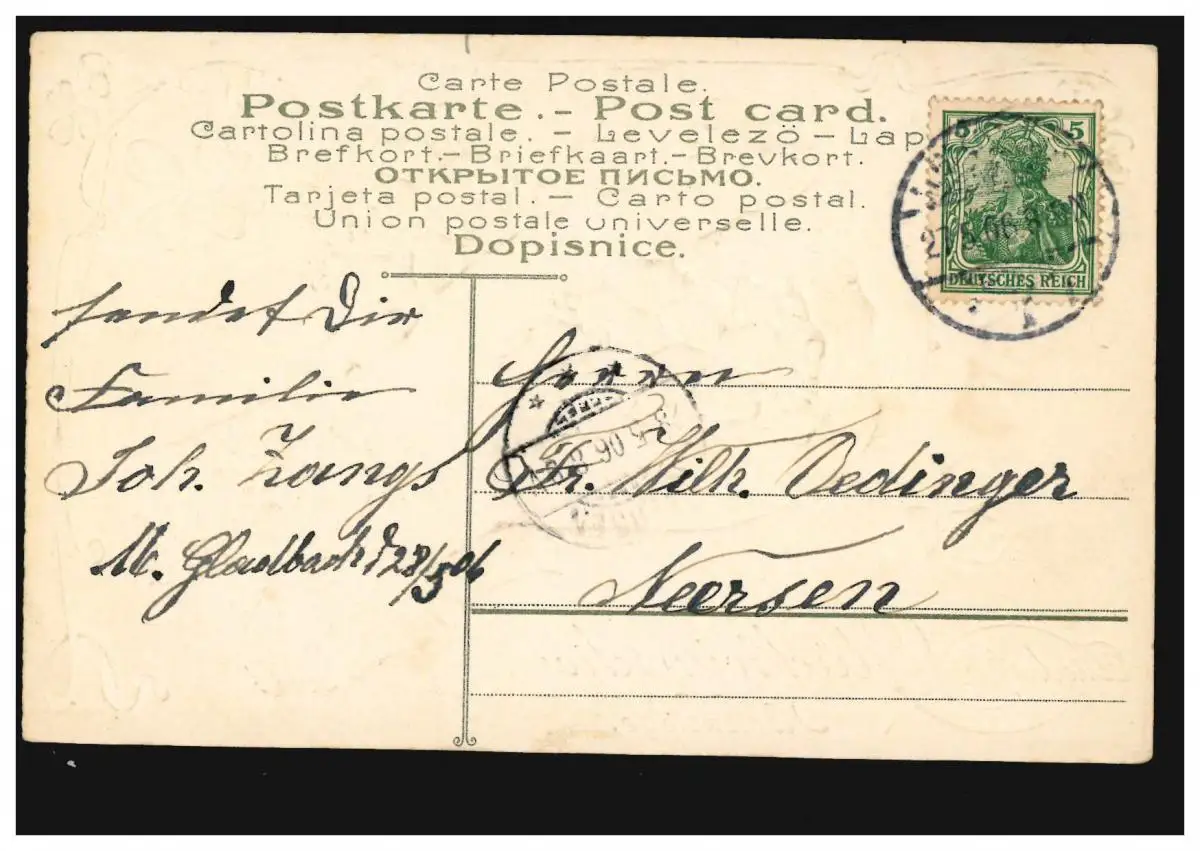 Carte Postale.
Postkarte. - Post card.
Cartolina postale. - Levelező - Lap
Brefkort. - Briefkaart. - Brevkort.
ОТКРЫТОЕ ПИСЬМО.
Tarjeta postal. - Carto postal.
Union postale universelle.
Dopisnice.
5 5
DEUTSCHES REICH
sendet Dir
Familie
Joh. Zangs
M. Gladbach d 28/5 06
Herrn
Fr. Wilh. Oedinger
Neersen